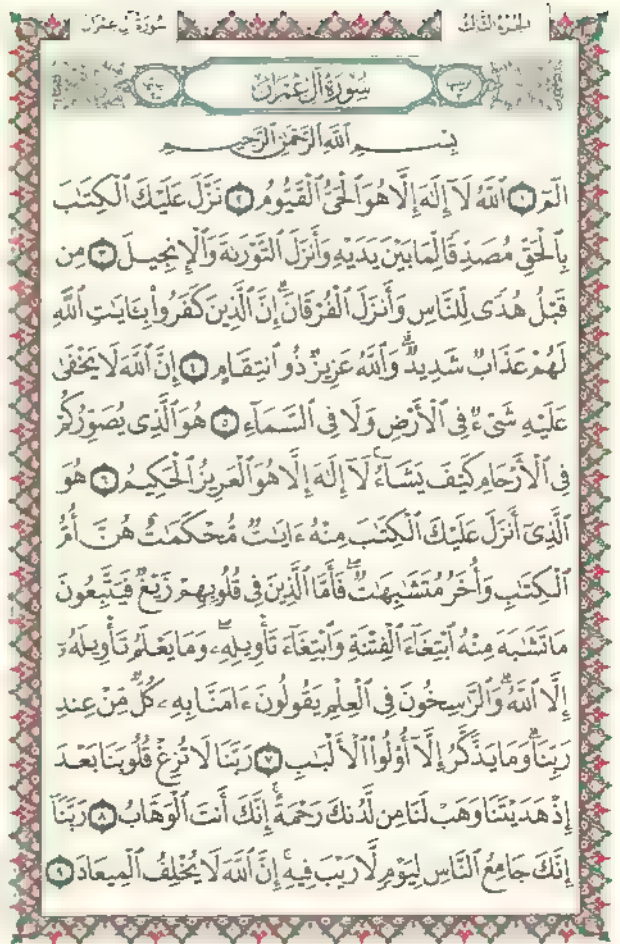 سُورَةُ آلِ عِمْرَانَ
الجُزْءُ الثَّالِثُ
سُورَةُ آلِ عِمْرَانَ
بِسْمِ ٱللَّهِ ٱلرَّحْمَٰنِ ٱلرَّحِيمِ
الٓمٓ ١ ٱللَّهُ لَآ إِلَٰهَ إِلَّا هُوَ ٱلْحَىُّ ٱلْقَيُّومُ ٢ نَزَّلَ عَلَيْكَ ٱلْكِتَٰبَ
بِٱلْحَقِّ مُصَدِّقًا لِّمَا بَيْنَ يَدَيْهِ وَأَنزَلَ ٱلتَّوْرَىٰةَ وَٱلْإِنجِيلَ ٣ مِن
قَبْلُ هُدًى لِّلنَّاسِ وَأَنزَلَ ٱلْفُرْقَانَ ۗ إِنَّ ٱلَّذِينَ كَفَرُوا۟ بِـَٔايَٰتِ ٱللَّهِ
لَهُمْ عَذَابٌ شَدِيدٌ ۗ وَٱللَّهُ عَزِيزٌ ذُو ٱنتِقَامٍ ٤ إِنَّ ٱللَّهَ لَا يَخْفَىٰ
عَلَيْهِ شَىْءٌ فِى ٱلْأَرْضِ وَلَا فِى ٱلسَّمَآءِ ٥ هُوَ ٱلَّذِى يُصَوِّرُكُمْ
فِى ٱلْأَرْحَامِ كَيْفَ يَشَآءُ ۚ لَآ إِلَٰهَ إِلَّا هُوَ ٱلْعَزِيزُ ٱلْحَكِيمُ ٦ هُوَ
ٱلَّذِىٓ أَنزَلَ عَلَيْكَ ٱلْكِتَٰبَ مِنْهُ ءَايَٰتٌ مُّحْكَمَٰتٌ هُنَّ أُمُّ
ٱلْكِتَٰبِ وَأُخَرُ مُتَشَٰبِهَٰتٌ ۖ فَأَمَّا ٱلَّذِينَ فِى قُلُوبِهِمْ زَيْغٌ فَيَتَّبِعُونَ
مَا تَشَٰبَهَ مِنْهُ ٱبْتِغَآءَ ٱلْفِتْنَةِ وَٱبْتِغَآءَ تَأْوِيلِهِۦ ۗ وَمَا يَعْلَمُ تَأْوِيلَهُۥٓ
إِلَّا ٱللَّهُ ۗ وَٱلرَّٰسِخُونَ فِى ٱلْعِلْمِ يَقُولُونَ ءَامَنَّا بِهِۦ كُلٌّ مِّنْ عِندِ
رَبِّنَا ۗ وَمَا يَذَّكَّرُ إِلَّآ أُو۟لُوا۟ ٱلْأَلْبَٰبِ ٧ رَبَّنَا لَا تُزِغْ قُلُوبَنَا بَعْدَ
إِذْ هَدَيْتَنَا وَهَبْ لَنَا مِن لَّدُنكَ رَحْمَةً ۚ إِنَّكَ أَنتَ ٱلْوَهَّابُ ٨ رَبَّنَآ
إِنَّكَ جَامِعُ ٱلنَّاسِ لِيَوْمٍ لَّا رَيْبَ فِيهِ ۚ إِنَّ ٱللَّهَ لَا يُخْلِفُ ٱلْمِيعَادَ ٩